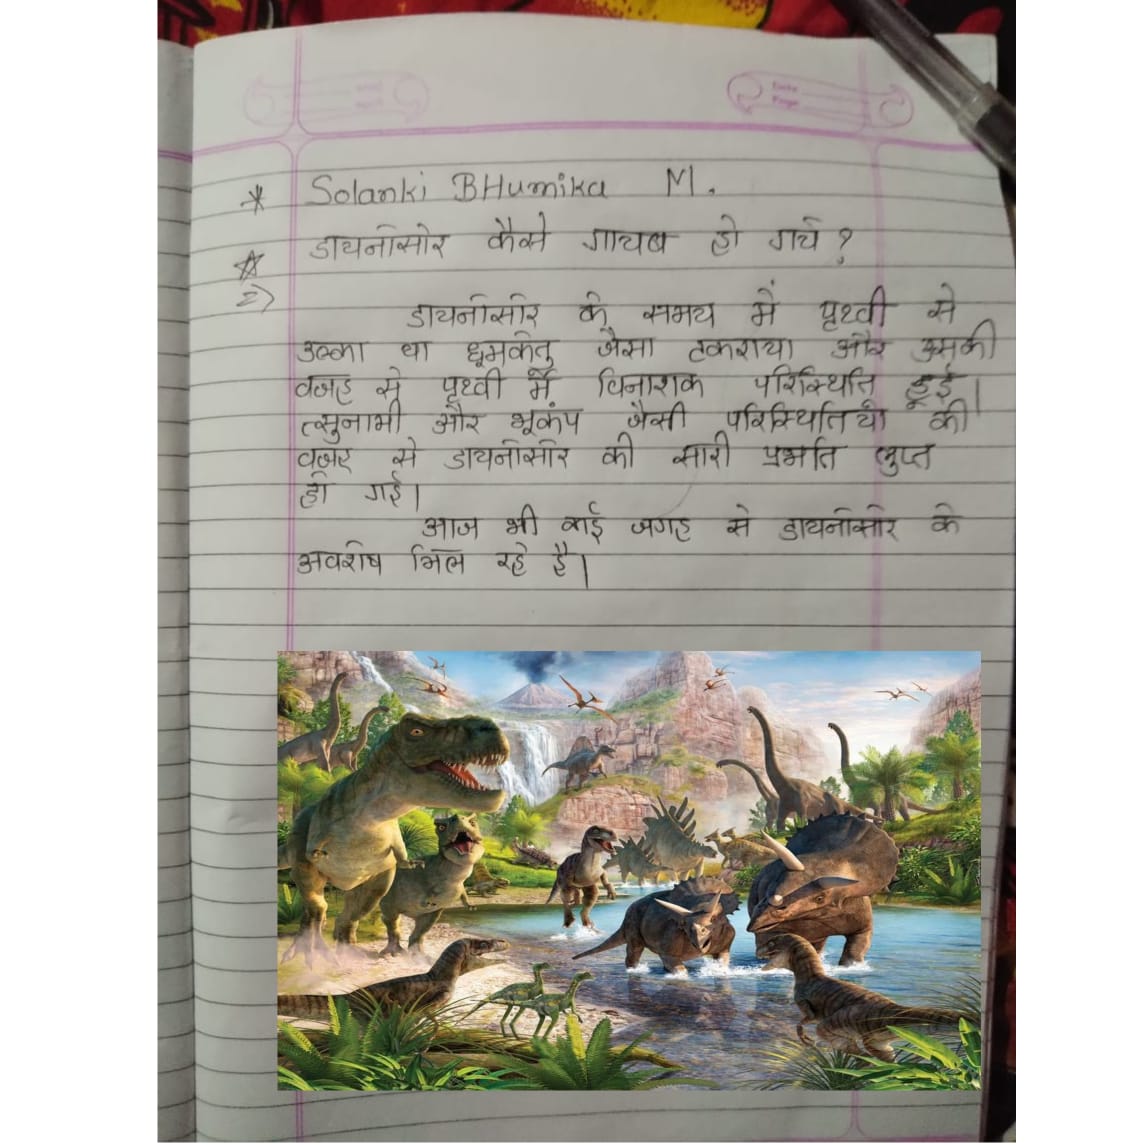 * Solanki BHumika M.
☆ डायनोसोर कैसे गायब हो गये ?
2) डायनोसोर के समय में पृथ्वी से
उल्का या धूमकेतु जैसा टकराया और उसकी
वजह से पृथ्वी में विनाशक परिस्थिति हूई।
त्सुनामी और भूकंप जैसी परिस्थितियो की
वजह से डायनोसोर की सारी प्रजाति लुप्त
हो गई।
आज भी कई जगह से डायनोसोर के
अवशेष मिल रहे है।